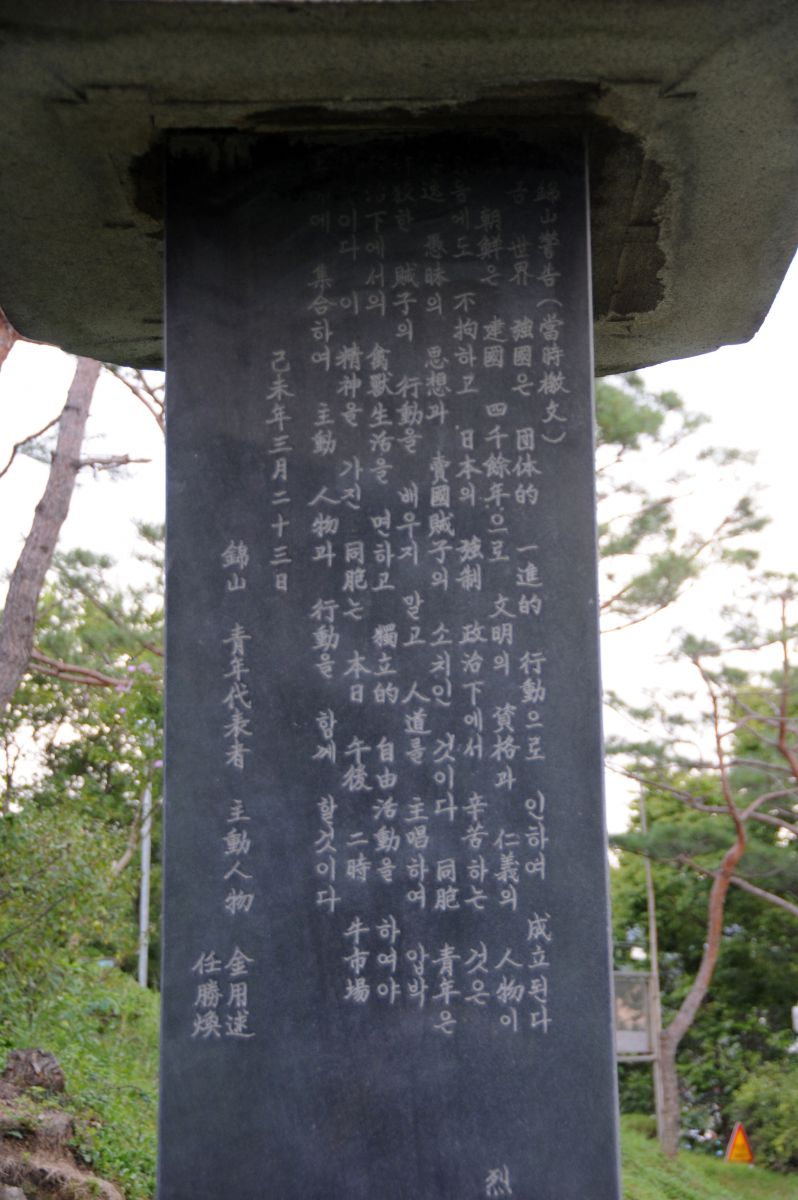 錦山警告(當時檄文)
世界 強國은 団体的 一進的 行動으로 인하여 成立된다
朝鮮은 建國 四千餘年으로 文明의 資格과 仁義의 人物이
不拘하고 日本의 強制 政治下에서 辛苦하는 것은
愚昧의 思想과 賣國賊子의 소치인 것이다 同胞 青年은
賊子의 行動을 배우지 말고 人道를 主唱하여 압박
治下에서의 禽獸生活을 면하고 獨立的 自由活動을 하여야
이 精神을 가진 同胞는 本日 午後 二時 牛市場
集合하여 主動 人物과 行動을 함께 할것이다
己未年三月二十三日
錦山 青年代表者 主動人物 金用述
任勝煥
烈